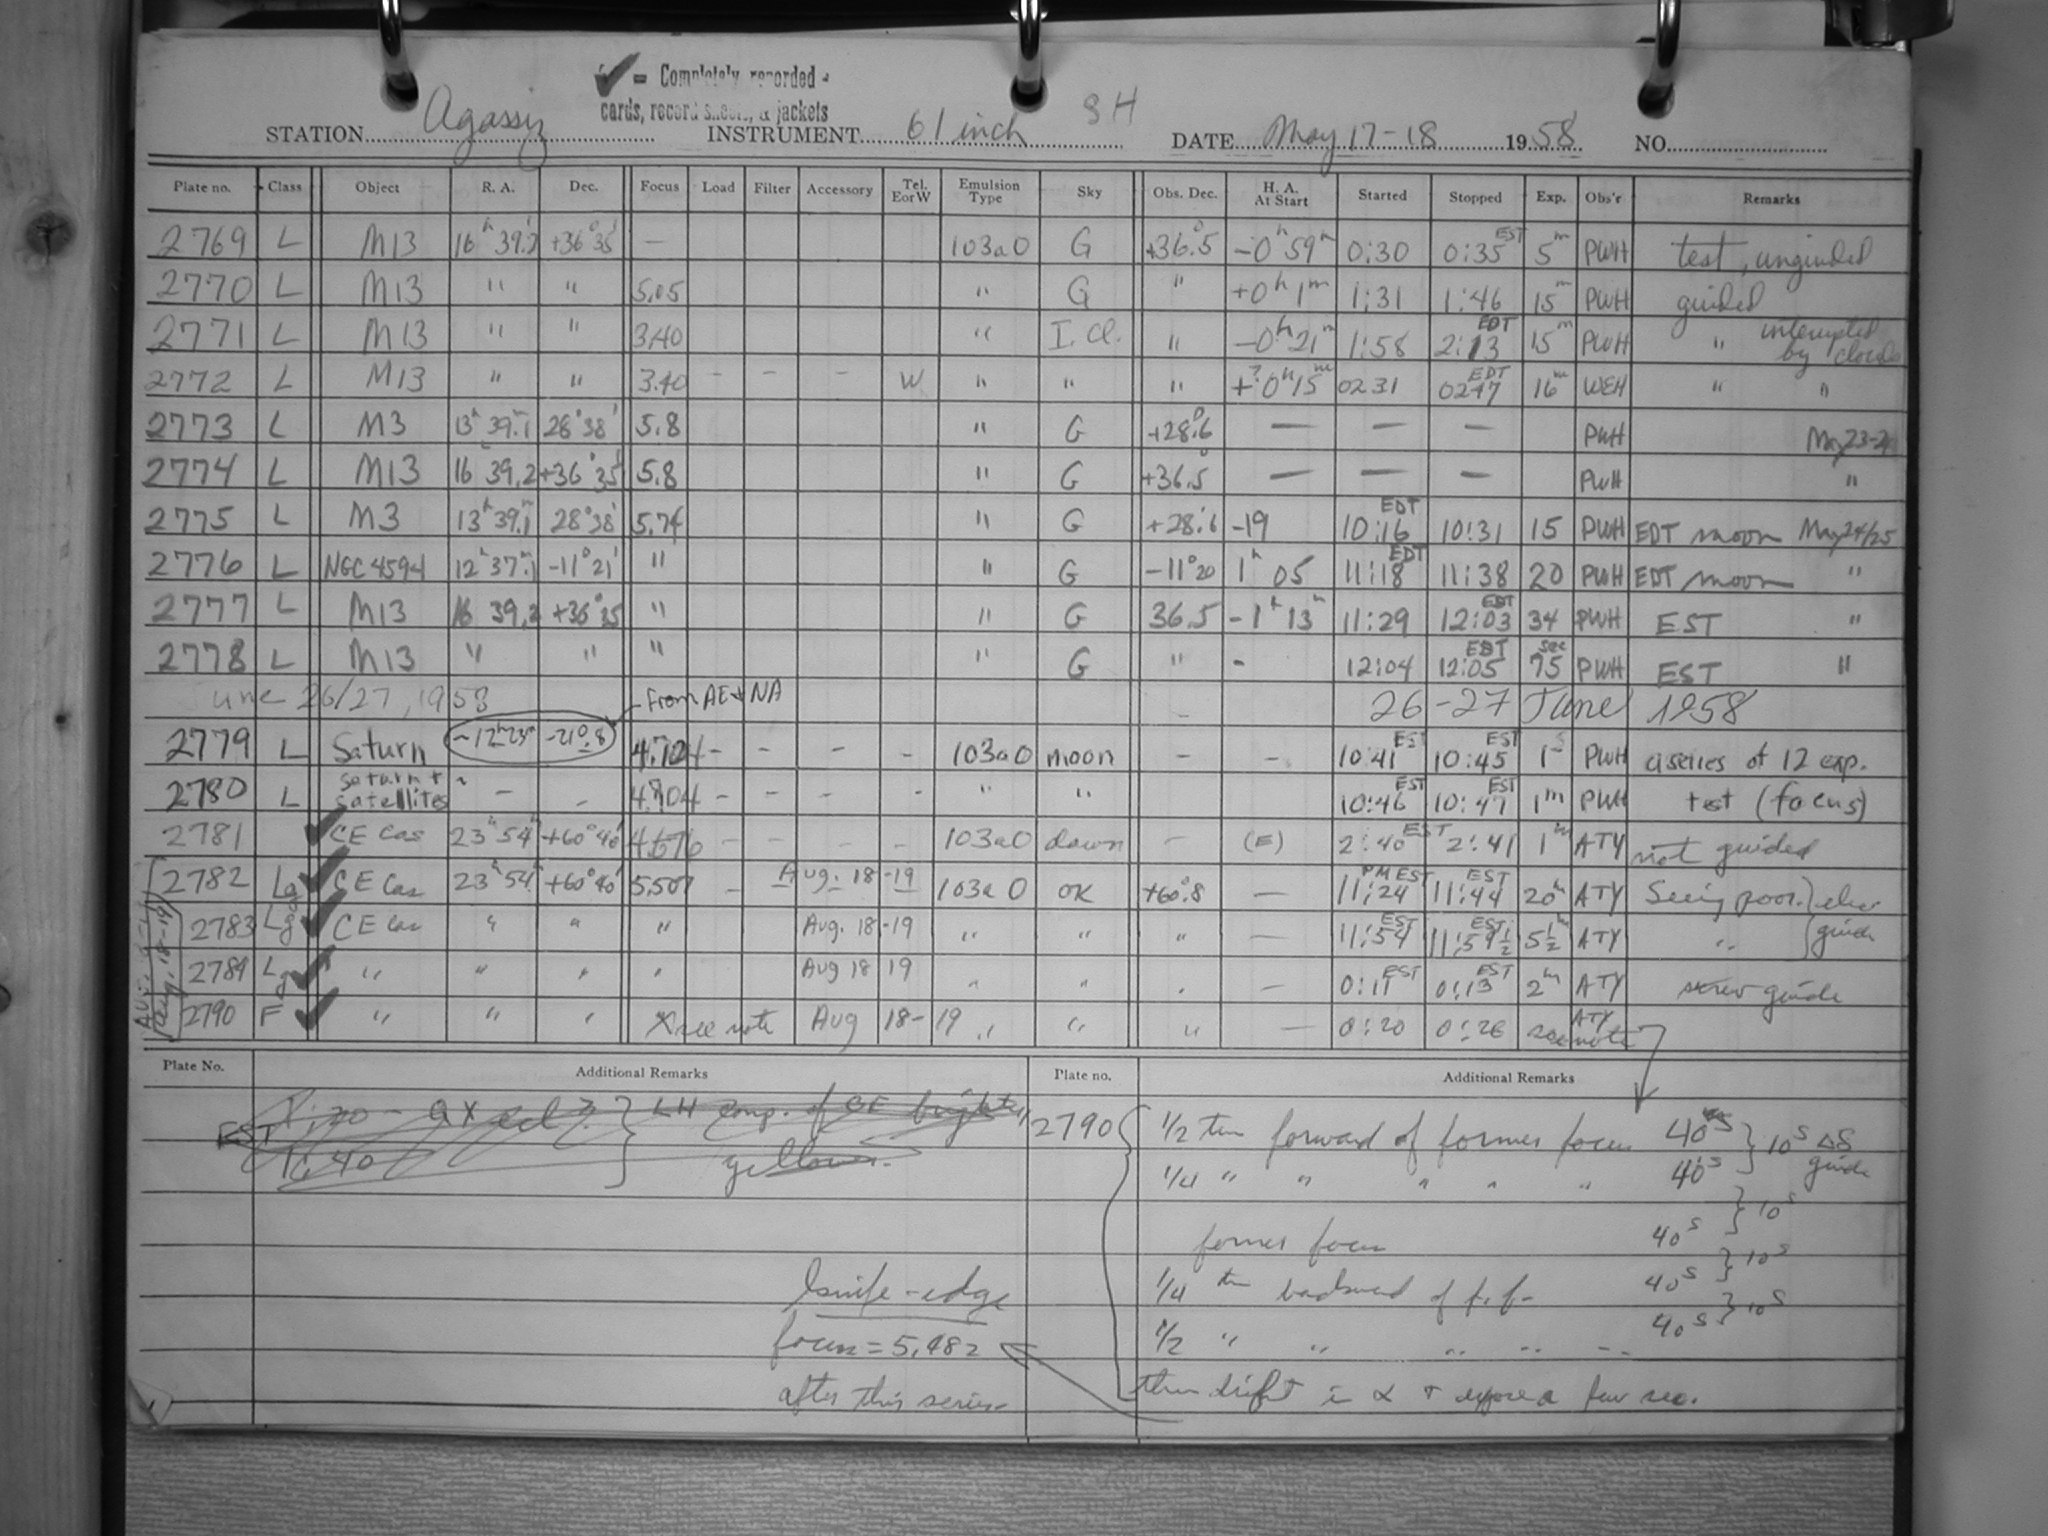 ✓ = Completely recorded
cards, record sheets, & jackets
SH
STATION Agassiz INSTRUMENT 61 inch DATE May 17-18 1958 NO.
Plate no. Class Object R. A. Dec. Focus Load Filter Accessory Tel. E or W Emulsion Type Sky Obs. Dec. H. A. At Start Started Stopped Exp. Obs'r Remarks
2769 L M13 16h 39.2 +36°35' — 103aO G +36.5° -0h 59m 0:30 0:35 EST 5m PWH test, unguided
2770 L M13 " " 5.05 " G " +0h 1m 1:31 1:46 15m PWH guided
2771 L M13 " " 3.40 " I. Cl. " -0h 21m 1:58 2:13 EDT 15m PWH " interrupted by clouds
2772 L M13 " " 3.40 - - - W " " " +?0h 15m 0231 0247 EDT 16m WEH " "
2773 L M3 13h 39.1m 28°38' 5.8 " G +28.6° — — — PWH May 23-24
2774 L M13 16 39.2 +36°35' 5.8 " G +36.5° — — — PWH "
2775 L M3 13h 39.1m 28°38' 5.74 " G +28.6 -19 10:16 EDT 10:31 15 PWH EDT moon May 24/25
2776 L NGC 4594 12h 37.1m -11°21' " " G -11°20 1h 05 11:18 EDT 11:38 20 PWH EDT moon "
2777 L M13 16 39.2 +36°35 " " G 36.5 -1h 13m 11:29 12:03 EDT 34 PWH EST "
2778 L M13 " " " " G " - 12:04 12:05 EDT 75 sec PWH EST "
une 26/27, 1958 From AE & NA 26-27 June 1958
2779 L Saturn ~17h23m -21°.8 4.704 - - - - 103aO moon - - 10:41 EST 10:45 EST 1s PWH a series of 12 exp.
2780 L saturn + satellites ~ - - 4.804 - - - - " " 10:46 EST 10:47 EST 1m PWH test (focus)
2781 ✓ CE Cas 23h 54m +60°40' 4.676 - - - - 103aO dawn - (E) 2:40 EST 2:41 1m ATY not guided
2782 Lg ✓ CE Cas 23h 54m +60°40' 5.507 - Aug. 18-19 103a O OK +60°.8 — 11:24 PM EST 11:44 EST 20m ATY Seeing poor.
2783 Lg ✓ CE Cas " " " Aug. 18-19 " " " — 11:54 EST 11:59½ EST 5½m ATY " guide
2784 Lg ✓ " " " " Aug 18 19 " " " — 0:11 EST 0:13 EST 2m ATY screw guide
2790 F ✓ " " " X see note Aug 18-19 " " " — 0:20 0:26 see note ATY
Aug. 18-19
Plate No. Additional Remarks Plate no. Additional Remarks
EST
1:40
yellower.
2790 { 1/2 turn forward of former focus 40s } 10s Δδ guide
1/4 " " " " " 40s
} 10s
former focus 40s
} 10s
1/4 turn backward of f.f. 40s
} 10s
1/2 " " " " " 40s
then drift in α & expose a few sec.
knife-edge
focus = 5.482
after this series